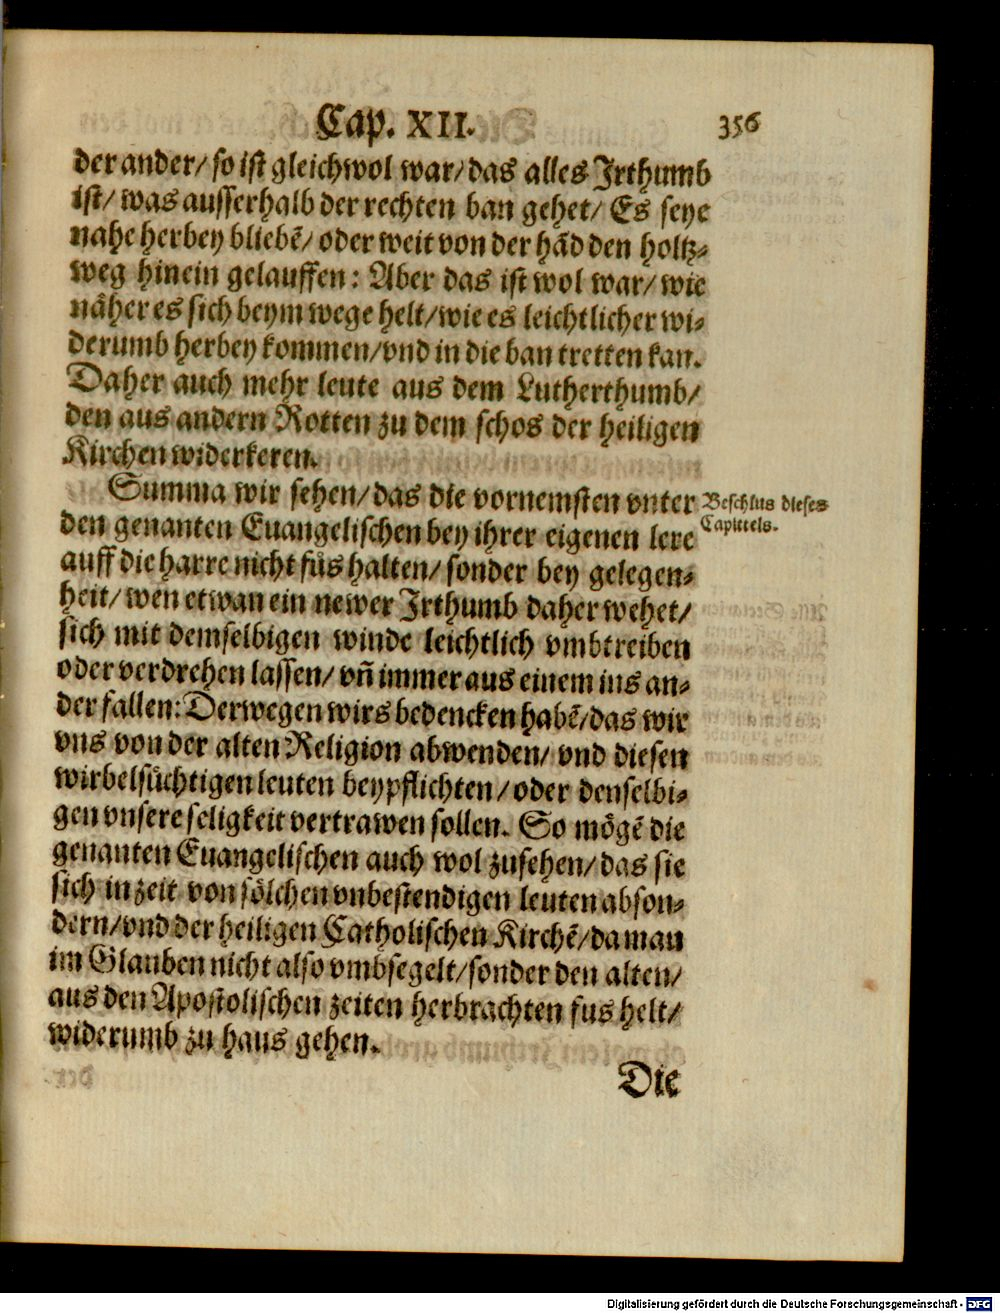 Cap. XII. 356
der ander/ so ist gleichwol war/ das alles Jrthumb
ist/ was ausserhalb der rechten ban gehet/ Es seye
nahe herbey bliebẽ/ oder weit von der hãd den holtz-
weg hinein gelauffen: Aber das ist wol war/ wie
näher es sich beym wege helt/ wie es leichtlicher wi-
derumb herbey kommen/ vnd in die ban tretten kan.
Daher auch mehr leute aus dem Lutherthumb/
den aus andern Rotten zu dem schos der heiligen
Kirchen widerkeren.
Summa wir sehen/ das die vornemsten vnter
Beschlus dieses
Capittels.
den genanten Euangelischen bey ihrer eigenen lere
auff die harre nicht fus halten/ sonder bey gelegen-
heit/ wen etwan ein newer Jrthumb daher wehet/
sich mit demselbigen winde leichtlich vmbtreiben
oder verdrehen lassen/ vñ immer aus einem ins an-
der fallen: Derwegen wirs bedencken habẽ/ das wir
vns von der alten Religion abwenden/ vnd diesen
wirbelsüchtigen leuten beypflichten/ oder denselbi-
gen vnsere seligkeit vertrawen sollen. So mögẽ die
genanten Euangelischen auch wol zusehen/ das sie
sich in zeit von sölchen vnbestendigen leuten abson-
dern/ vnd der heiligen Catholischen Kirchẽ/ da man
im Glauben nicht also vmbsegelt/ sonder den alten/
aus den Apostolischen zeiten herbrachten fus helt/
widerumb zu haus gehen.
Die
Digitalisierung gefördert durch die Deutsche Forschungsgemeinschaft - DFG